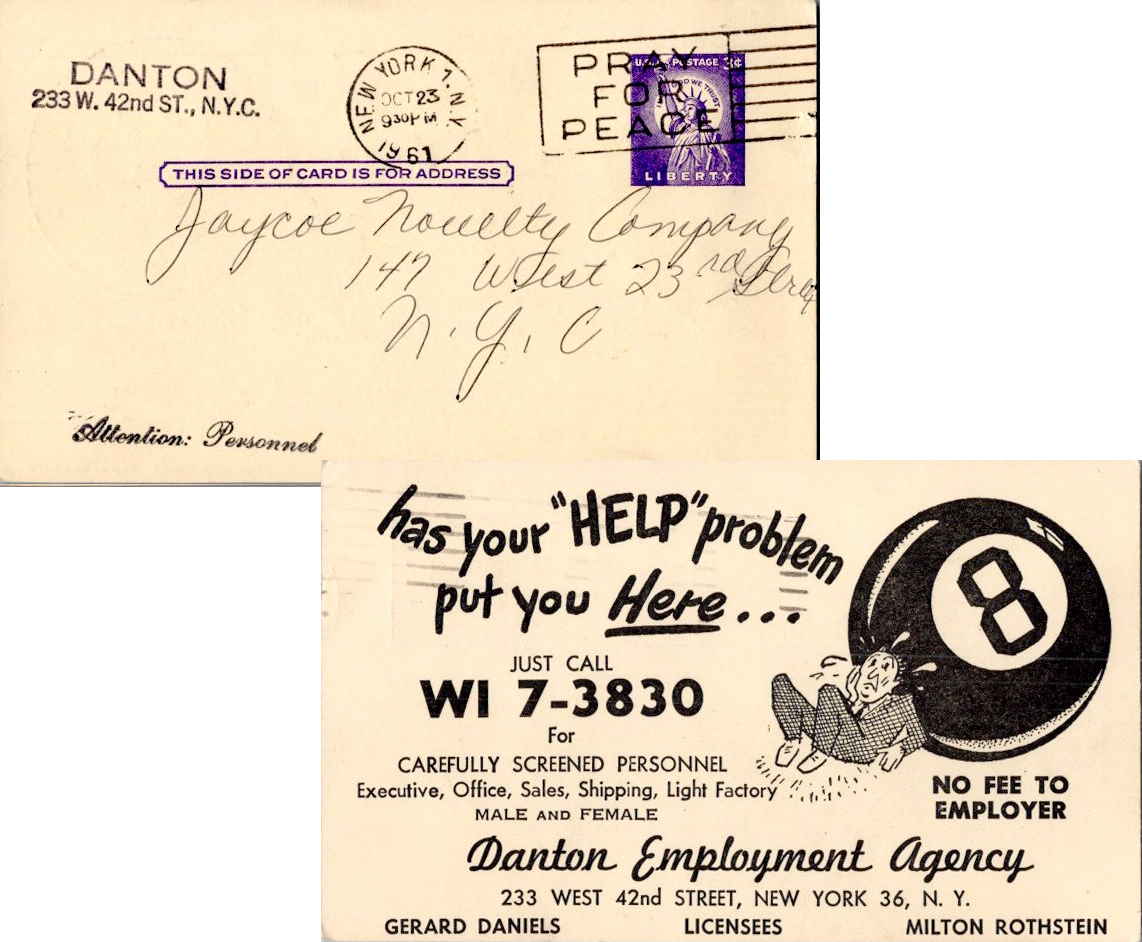 DANTON
233 W. 42nd ST., N.Y.C.
NEW YORK 1, N.Y.
OCT 23
9 30 PM
1961
PRAY
FOR
PEACE
U.S. POSTAGE 3¢
IN GOD WE TRUST
LIBERTY
THIS SIDE OF CARD IS FOR ADDRESS
Jaycoe Novelty Company
147 West 23rd Street
N.Y.C
Attention: Personnel
has your "HELP" problem
put you Here...
8
JUST CALL
WI 7-3830
For
CAREFULLY SCREENED PERSONNEL
Executive, Office, Sales, Shipping, Light Factory
MALE AND FEMALE
NO FEE TO
EMPLOYER
Danton Employment Agency
233 WEST 42nd STREET, NEW YORK 36, N. Y.
GERARD DANIELS LICENSEES MILTON ROTHSTEIN